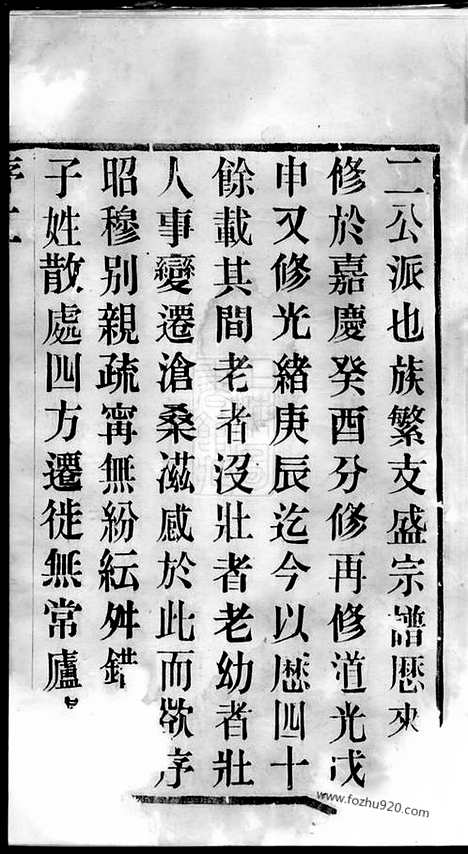 二公派也族繁支盛宗譜歷來
修於嘉慶癸酉分修再修道光戊
申又修光緒庚辰迄今以歷四十
餘載其間老者沒壯者老幼者壯
人事變遷滄桑滋感於此而欲序
昭穆別親疏甯無紛紜舛錯
子姓散處四方遷徙無常廬
序二
www.fozhu920.com